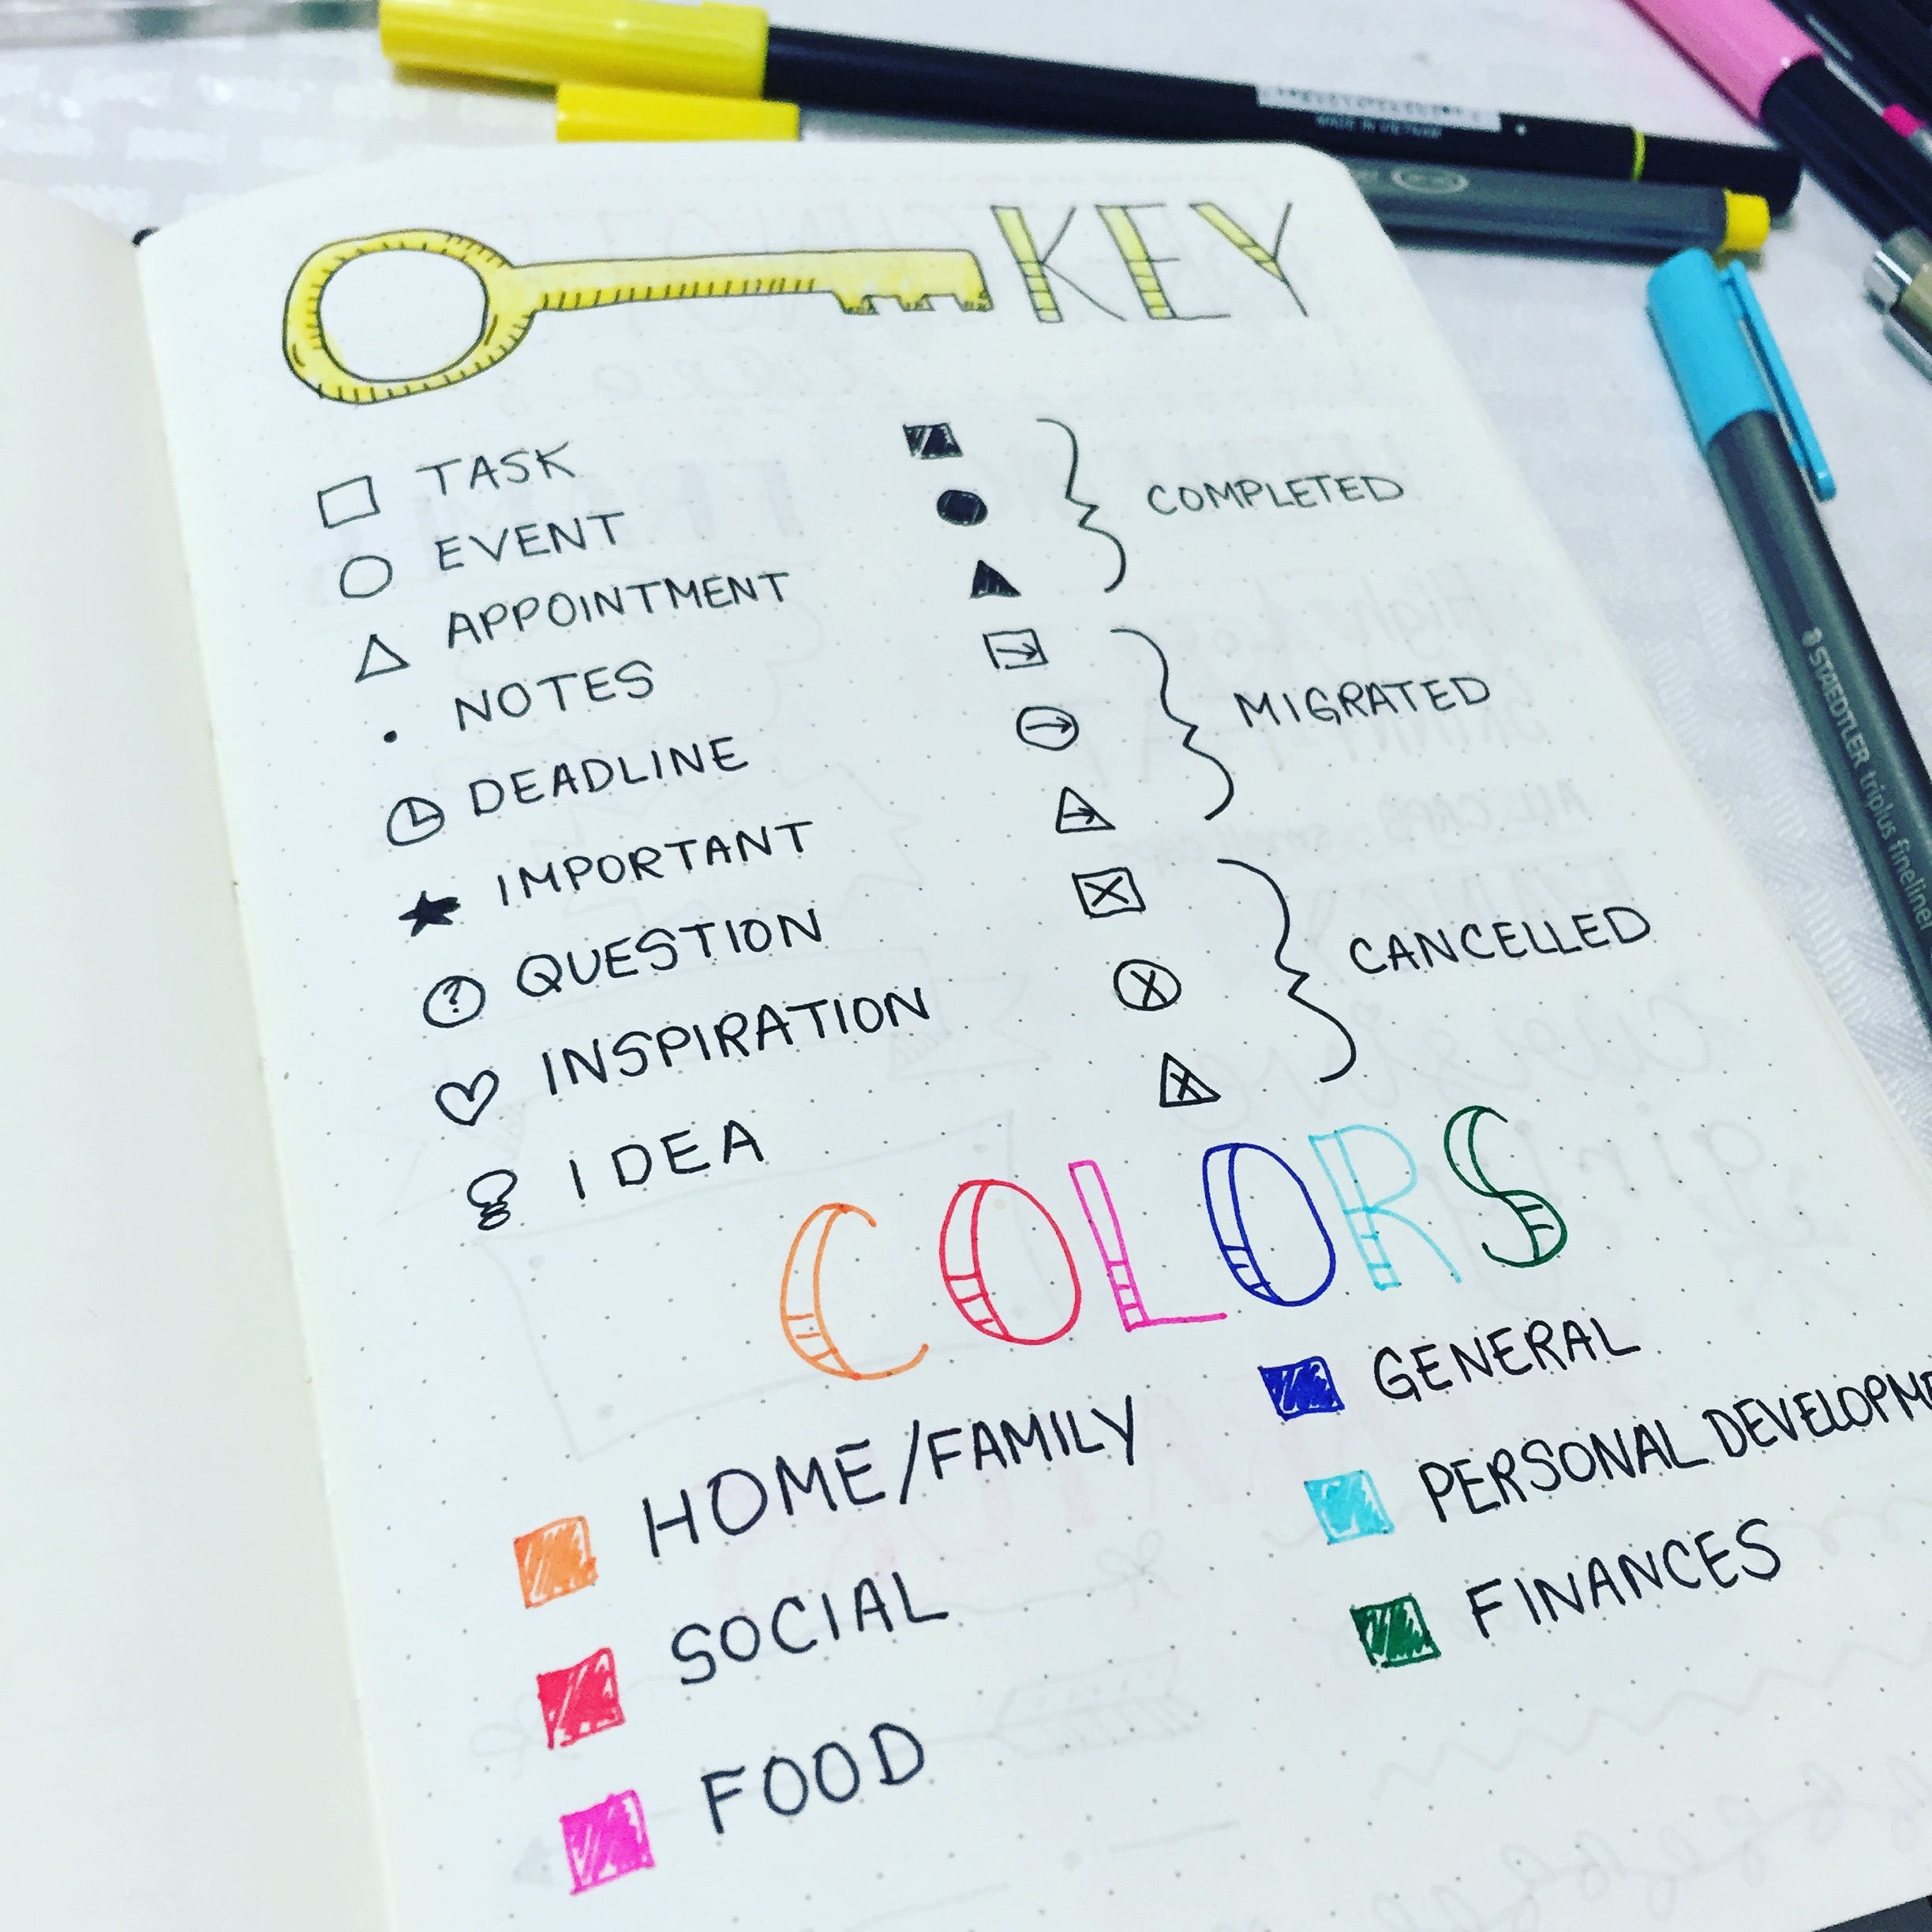 KEY
TASK
EVENT
APPOINTMENT
NOTES
DEADLINE
IMPORTANT
? QUESTION
INSPIRATION
IDEA
COMPLETED
MIGRATED
CANCELLED
COLORS
HOME/FAMILY
SOCIAL
FOOD
GENERAL
PERSONAL DEVELOPME
FINANCES
MADE IN VIETNAM
STAEDTLER triplus fineliner